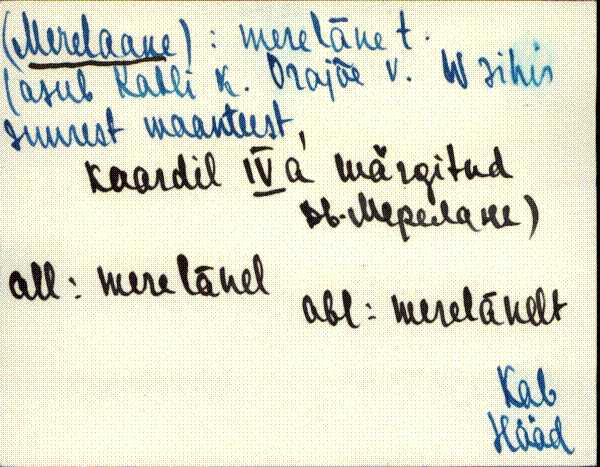 (Merelaane) : merelāne t.
(asub Kabli k. Orajõe v. W sihis
suurest maanteest,
kaardil IV á märgitud
дв. Мерелане)
all: merelānel
abl: merelānelt
Kab
Hääd